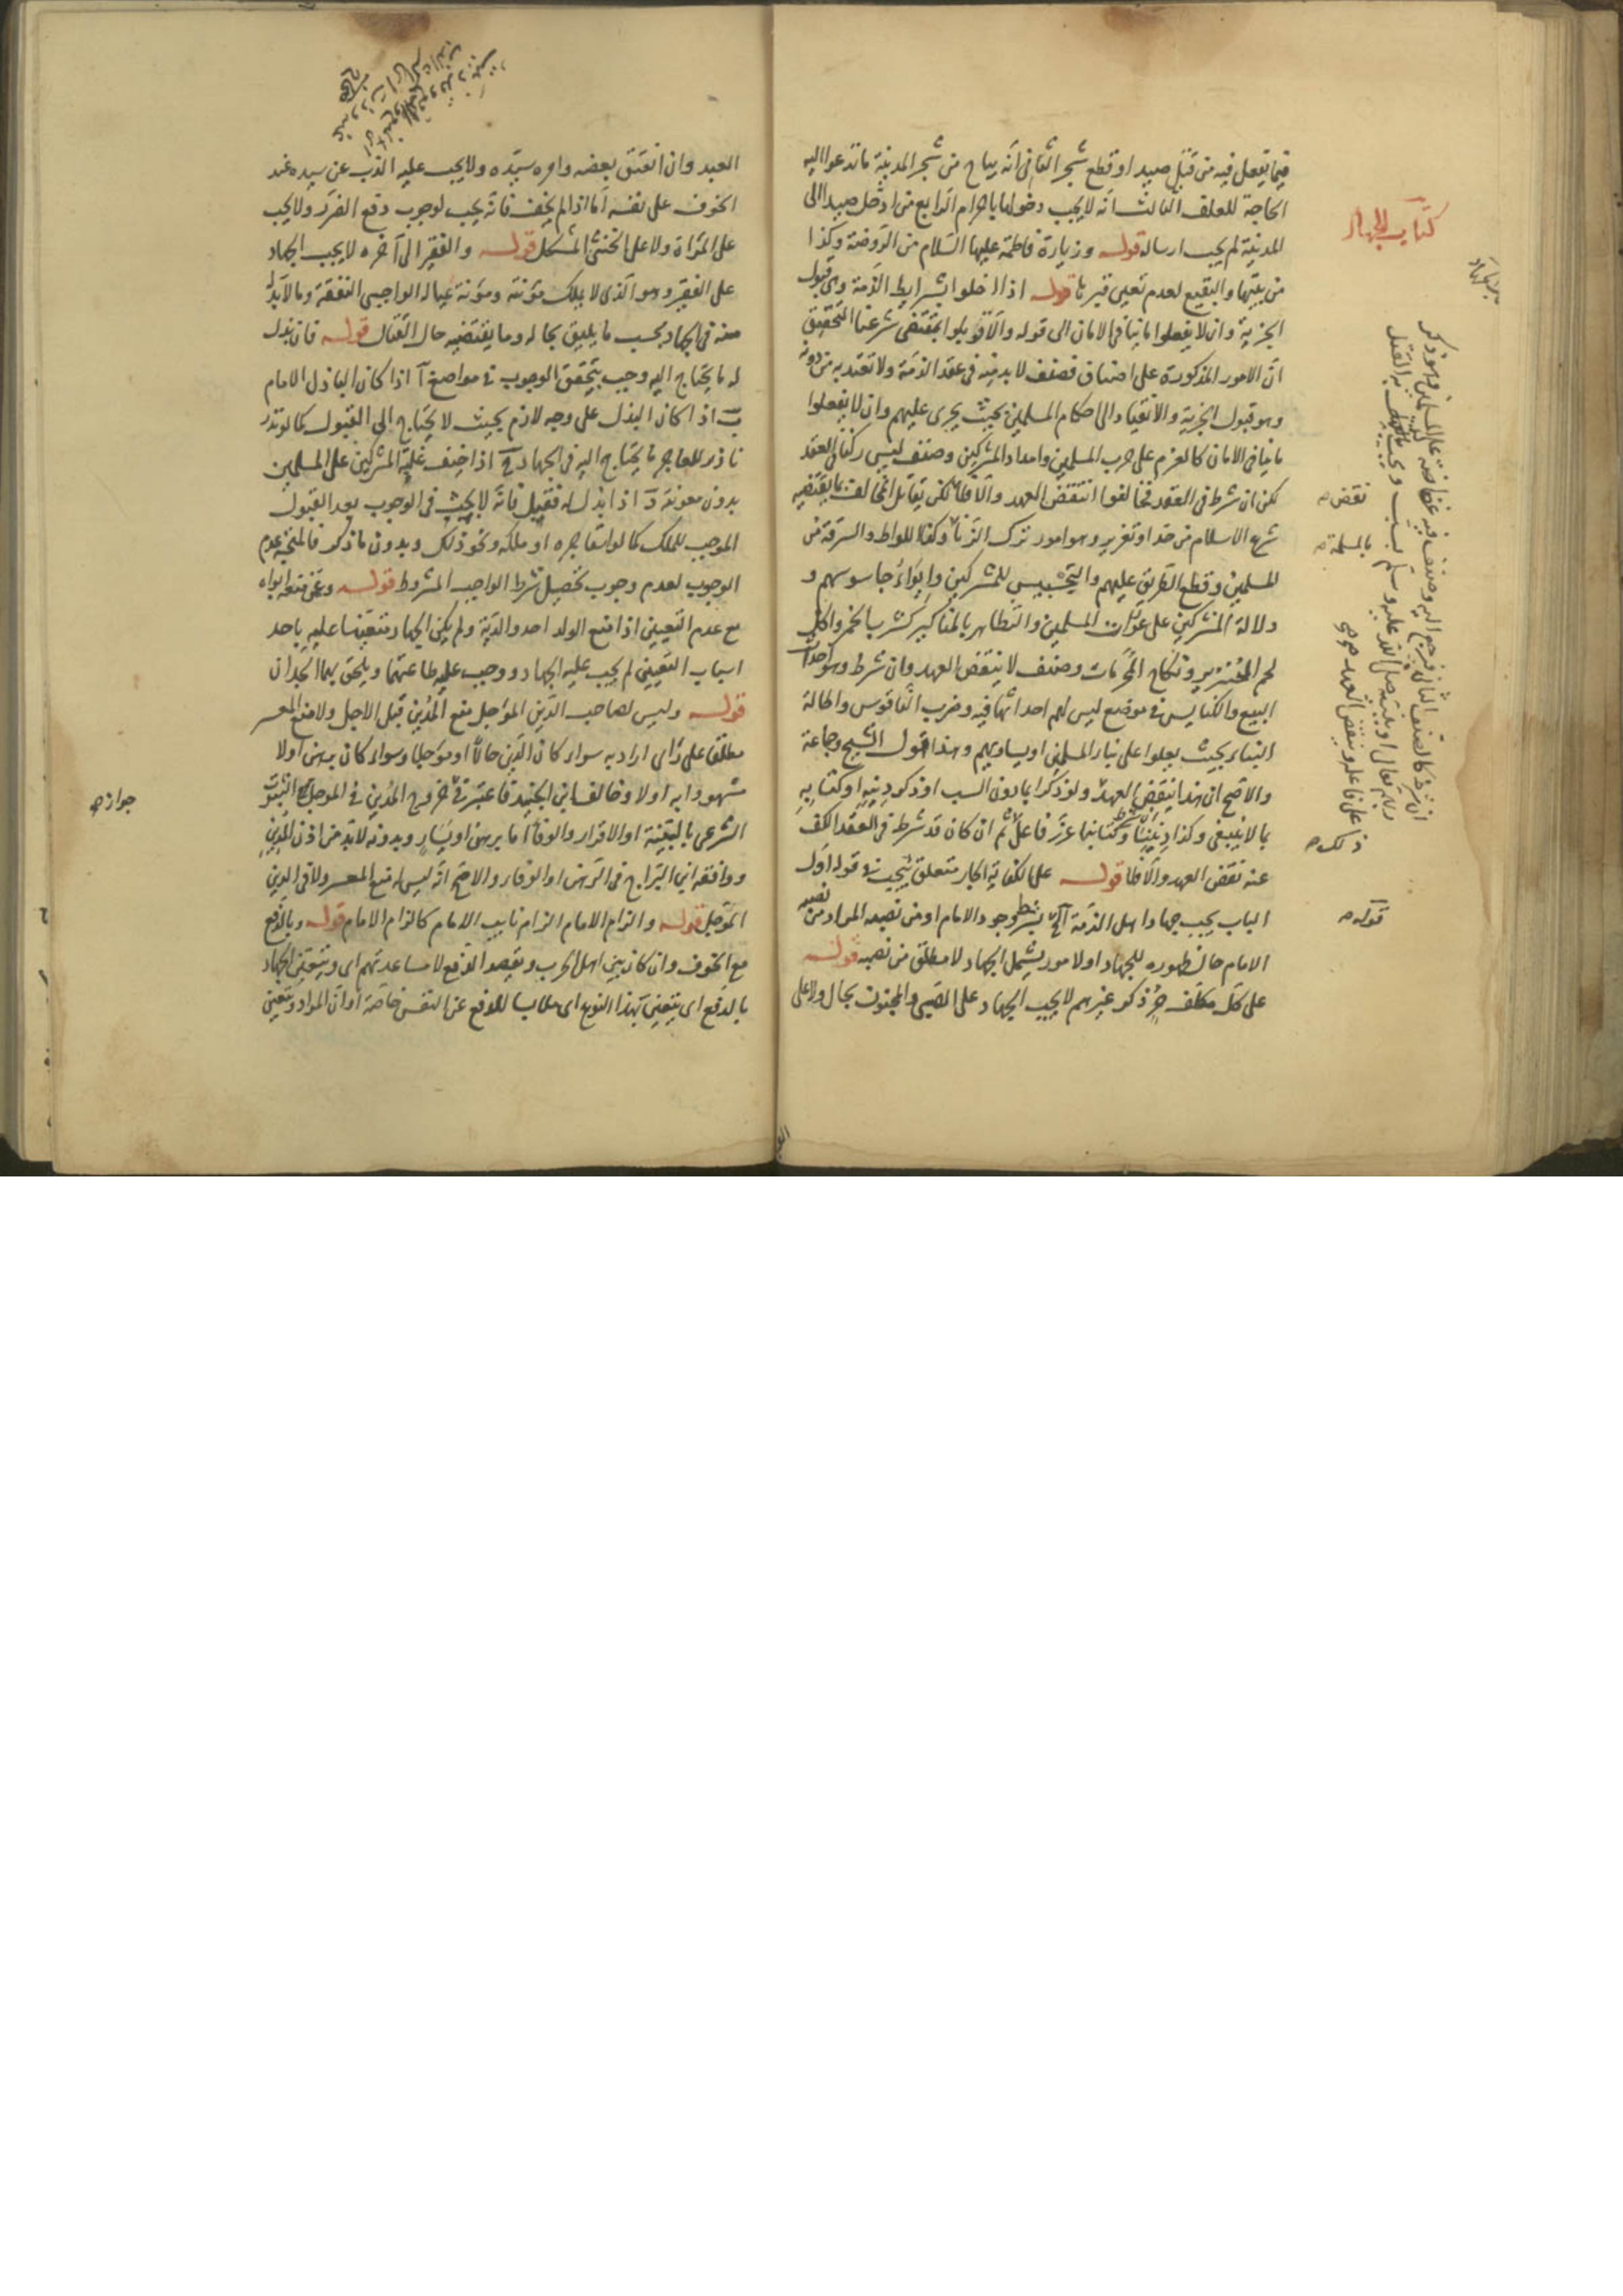 فيما يفعل فيه من قتل صيد او قطع شجر الثاني انه يباح من شجر المدينة ما تدعو اليه
الحاجة للعلف الثالث انه لا يجب دخولها باحرام الرابع من ادخل صيدا الى
المدينة لم يجب ارساله قوله وزيارة فاطمة عليها السلام من الروضة وكذا
من بيتها والبقيع لعدم تعين قبرها قوله اذا اخلوا بشرايط الذمة وهي قبول
الجزية وان لا يفعلوا ما ينافي الامان الى قوله والا قوبلوا بمقتضى شرعنا التحقيق
ان الامور المذكورة على اصناف فصنف لا بد منه في عقد الذمة ولا تعتد به من دونه
وهو قبول الجزية والانقياد الى احكام المسلمين بحيث يجرى عليهم وان لا يفعلوا
ما ينافي الامان كالعزم على حرب المسلمين وامداد المشركين وصنف ليس ركنا في العقد
لكن ان شرط في العقد فخالفوا انتقض العهد والا فلا لكن يقابل المخالف بما يقتضيه
شرع الاسلام من حد او تعزير وهو امور ترك الزنا وكذا اللواط والسرقة من
المسلمين وقطع الطريق عليهم والتجسيس للمشركين وايواء جاسوسهم و
دلالة المشركين على عورات المسلمين والتظاهر بالمناكير كشرب الخمر واكل
لحم الخنزير ونكاح المحرمات وصنف لا ينتقض العهد وان شرط وهو احداث
البيع والكنايس في موضع ليس لهم احداثها فيه وضرب الناقوس واطالة
البناء بحيث يعلوا على بناء المسلمين او يساويهم وهذا قول الشيخ وجماعة
والاصح ان هذا ينقض العهد ولو ذكر ايما دون السب او ذكر دينه او كتابه
بما لا ينبغي وكذا ديننا وكتابنا عزر فاعله ثم ان كان قد شرط في العقد الكف
عنه نقض العهد والا فلا قوله على الكفاية الجار متعلق بيجب في قوله اول
الباب يجب جهاد اهل الذمة الخ بشرط وجود الامام او من نصبه المراد من نصبه
الامام حال ظهوره للجهاد او لامور يشمل الجهاد لا مطلق من نصبه قوله
على كل مكلف حر ذكر غيرهم لا يجب الجهاد على الصبي والمجنون بحال ولا على
كتاب الجهاد
نقض صح
بالمسلمة صح
ذلك صح
قوله صح
العبد وان انعتق بعضه وامره سيده ولا يجب عليه الذب عن سيده عند
الخوف على نفسه اما اذا لم يخف فانه يجب لوجوب دفع الضرر ولا يجب
على المراة ولا على الخنثى المشكل قوله والفقير الى آخره لا يجب الجهاد
على الفقير وهو الذى لا يملك مؤنته ومؤنة عياله الواجبي النفقة وما لا بد له
منه في الجهاد بحسب ما يليق بحاله وما يقتضيه حال القتال قوله فان بذل
له ما يحتاج اليه وجب يتحقق الوجوب في مواضع آ اذا كان الباذل الامام
ب اذا كان البذل على وجه لازم بحيث لا يحتاج الى القبول كما لو نذر
ناذر للعاجز ما يحتاج اليه في الجهاد ج اذا خيف غلبة المشركين على المسلمين
بدون معونته د اذا بذل له فقبل فانه لا يجب في الوجوب بعد القبول
الموجب للملك كما لو استاجره او ملكه ونحو ذلك وبدون ما ذكر فالمتجه عدم
الوجوب لعدم وجوب تحصيل شرط الواجب المشروط قوله وعن منعه ابواه
مع عدم التعيين اذا منع الولد احد والديه ولم يكن الجهاد متعينا عليه باحد
اسباب التعيين لم يجب عليه الجهاد ووجب عليه طاعتهما ويلحق بهما الجدان
قوله وليس لصاحب الدين المؤجل منع المدين قبل الاجل ولا منع المعسر
مطلقا على راى اراد به سواء كان الدين حالا او مؤجلا وسواء كان برهن اولا
مشهودا به اولا وخالف ابن الجنيد فاعتبر في خروج المدين في المؤجل الثبوت
الشرعي بالبينة او الاقرار والوفاء اما برهن او يسار وبدونه لا بد من اذن المدين
ووافقه ابن البراج في الرهن او الوفاء والاصح انه ليس له منع المعسر ولا في الدين
المؤجل قوله والزام الامام الزام نايب الامام كالزام الامام قوله وبالدفع
مع الخوف وان كان بين اهل الحرب ويقصد الدفع لا مساعدتهم اى ويتعين الجهاد
بالدفع اى يتعين بهذا النوع اى طالبا للدفع عن النفس خاصة او ان المراد ويتعين
جوازه صح